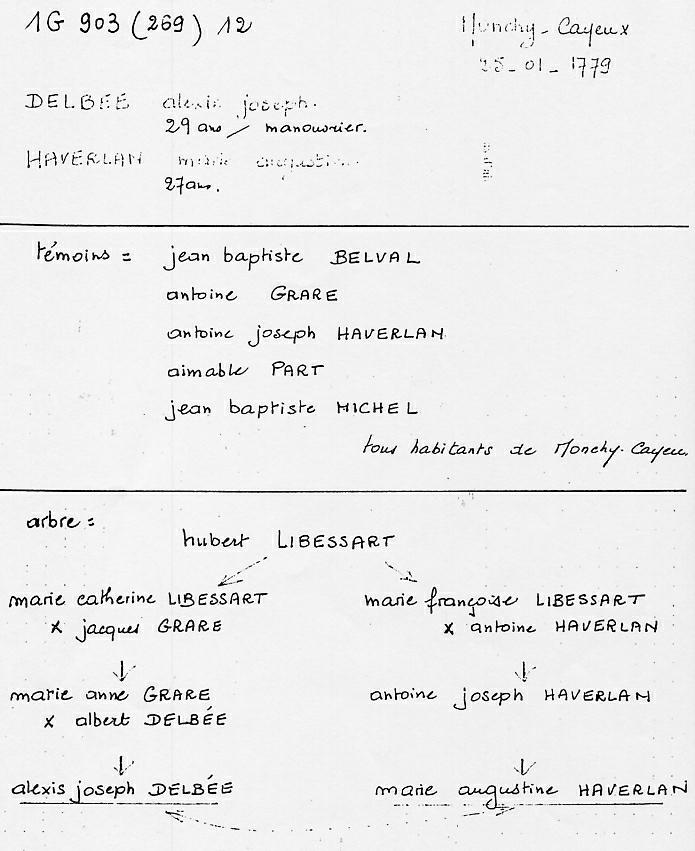 1G 903 (269) 12
Monchy-Cayeux
25-01-1779
DELBÉE alexis joseph.
29 ans / manouvrier.
HAVERLAN marie augustine
27 ans.
témoins = jean baptiste BELVAL
antoine GRARE
antoine joseph HAVERLAN
aimable PART
jean baptiste MICHEL
tous habitants de Monchy-Cayeu
arbre =
hubert LIBESSART
marie catherine LIBESSART marie françoise LIBESSART
x jacques GRARE x antoine HAVERLAN
marie anne GRARE antoine joseph HAVERLAN
x albert DELBÉE
alexis joseph DELBÉE marie augustine HAVERLAN